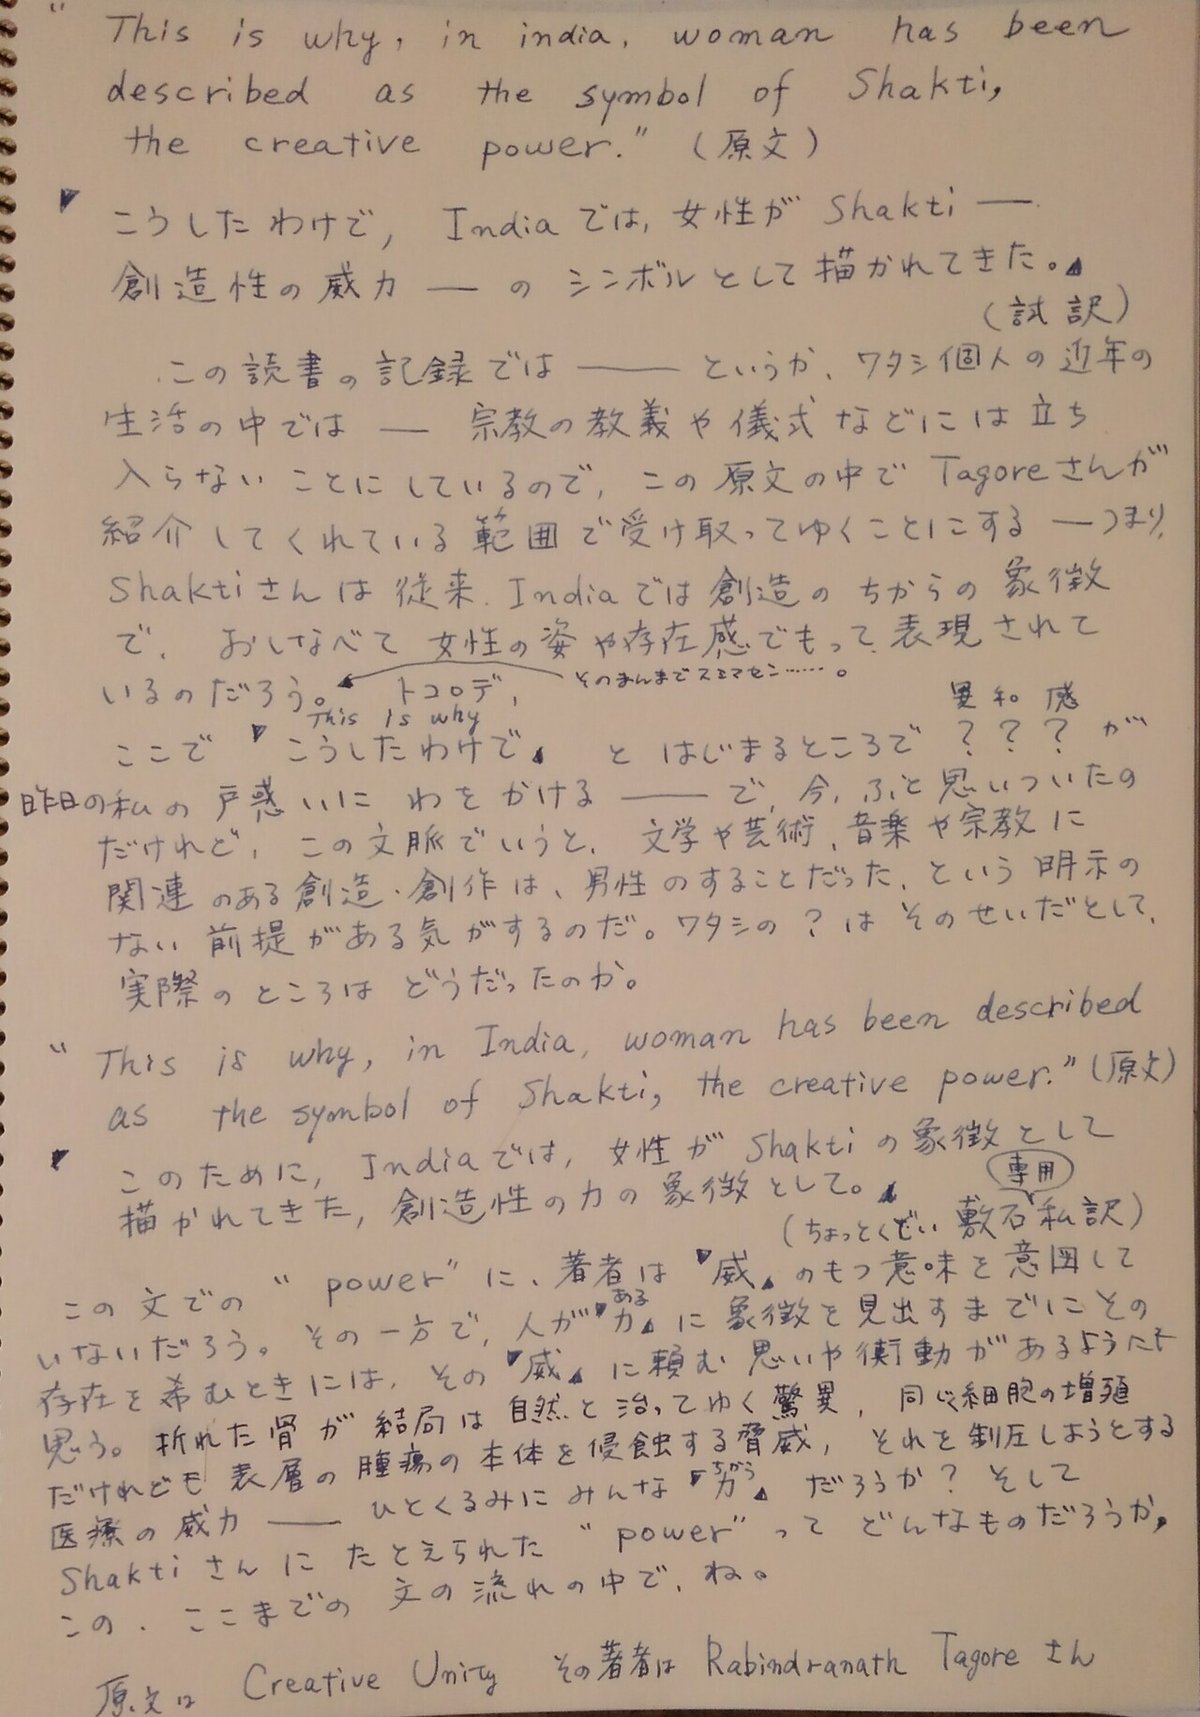 “This is why, in india, woman has been
described as the symbol of Shakti,
the creative power.” (原文)
「こうしたわけで, Indiaでは, 女性が Shakti ——
創造性の威力 —— の シンボルとして描かれてきた。」
(試訳)
この読書の記録では —— というか、ワタシ個人の近年の
生活の中では — 宗教の教義や儀式などには立ち
入らないことにしているので, この原文の中で Tagoreさんが
紹介してくれている範囲で受け取ってゆくことにする —つまり,
Shaktiさんは従来、Indiaでは創造のちからの象徴
で、おしなべて女性の姿や存在感でもって、表現されて
いるのだろう。 トコロデ, そのまんまでスミマセン……。
This is why 異和感
ここで「こうしたわけで」 と はじまるところで ? ? ? が
昨日の私の戸惑いに わをかける —— で, 今, ふと思いついたの
だけれど, この文脈でいうと、文学や芸術、音楽や宗教に
関連のある創造・創作は、男性のすることだった、という明示の
ない前提がある気がするのだ。ワタシの ? は そのせいだとして、
実際のところは どうだったのか。
“This is why, in India, woman has been described
as the symbol of Shakti, the creative power.” (原文)
「このために, Indiaでは, 女性が Shakti の象徴として
描かれてきた, 創造性の力の象徴として。」 専用
(ちょっとくどい 敷石私訳)
この文での “power” に、著者は「威」のもつ意味を意図して
ある
いないだろう。その一方で, 人が「力」に象徴を見出すまでにその
存在を希むときには, その「威」に頼む思いや衝動があるようにも
思う。折れた骨が結局は自然と治ってゆく驚異, 同じく細胞の増殖
だけれども表層の腫瘍の本体を侵蝕する脅威, それを制圧しようとする
ちから
医療の威力 —— ひとくるみにみんな「力」だろうか? そして
Shaktiさんにたとえられた “power” って どんなものだろうか,
この、ここまでの 文の流れの中で、ね。
原文は Creative Unity その著者は Rabindranath Tagore さん